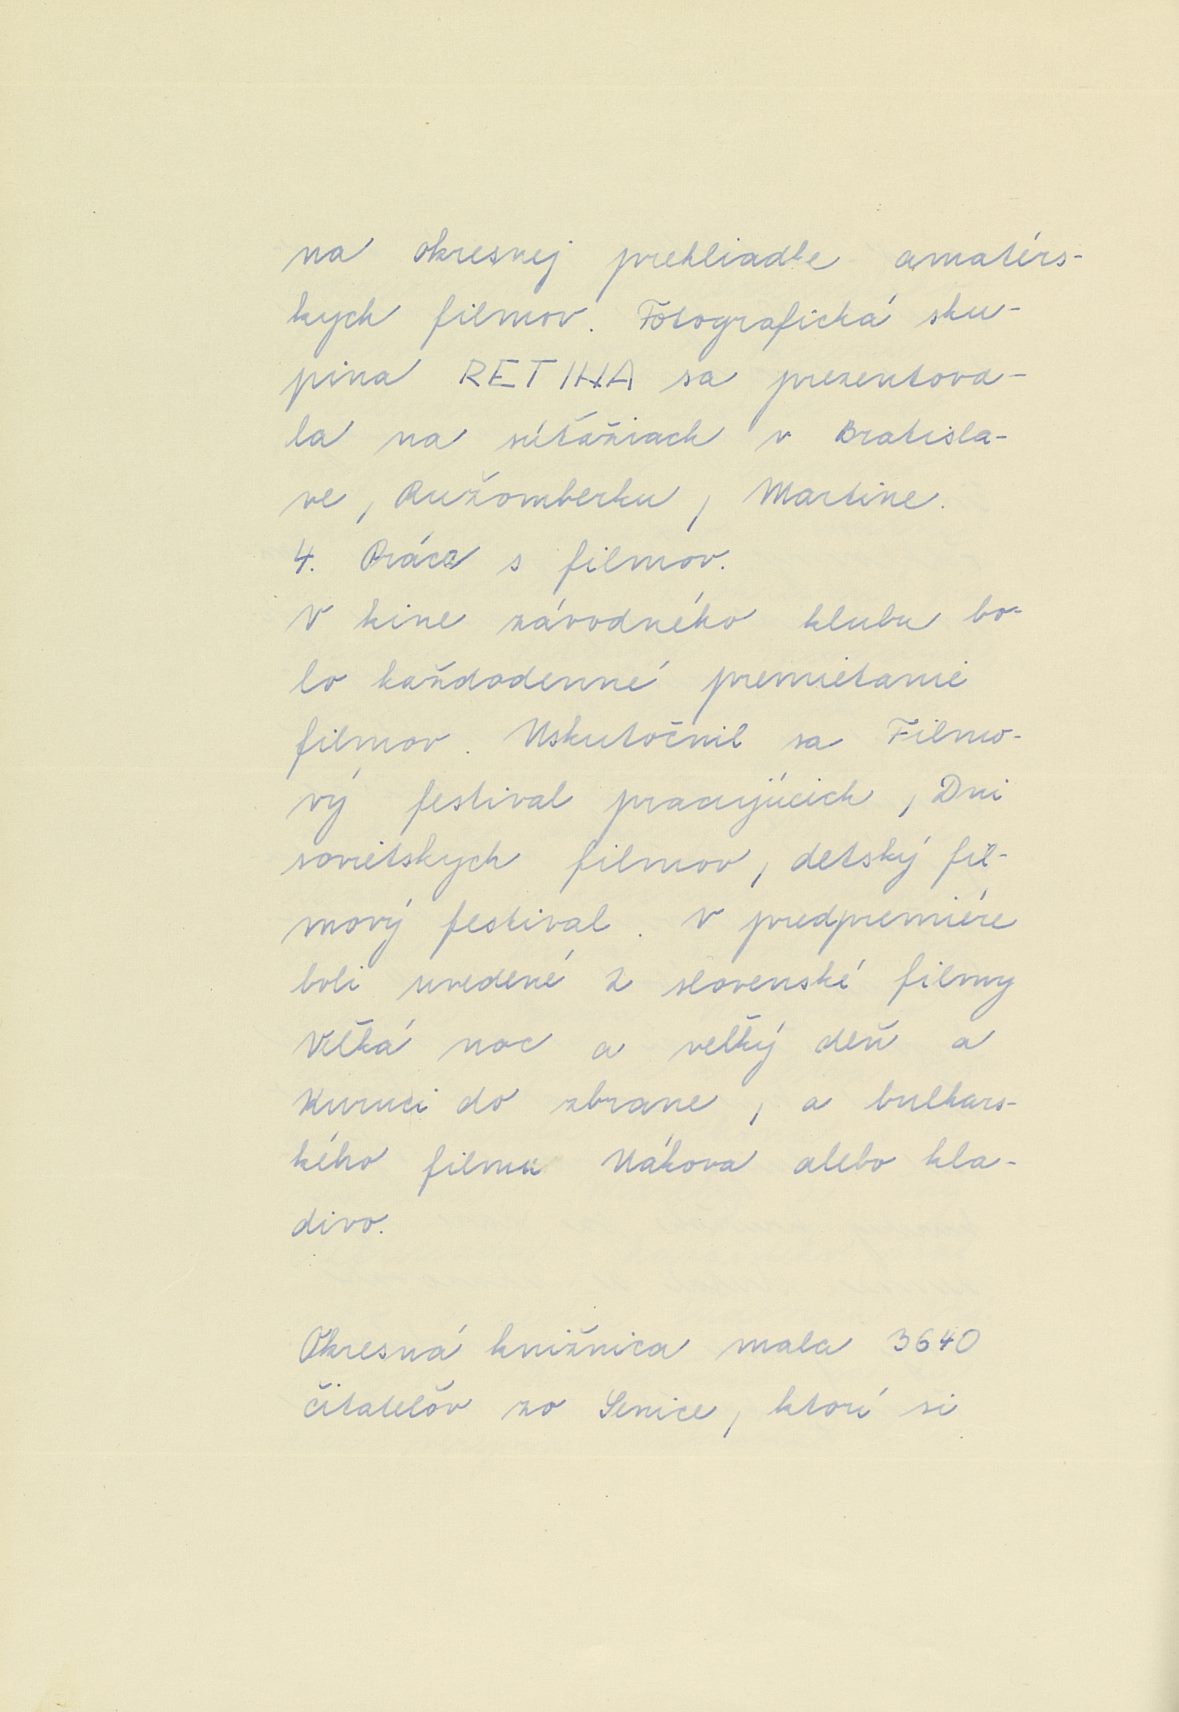 na okresnej prehliadke amatérs-
kych filmov. Fotografická sku-
pina RETINA sa prezentova-
la na súťažiach v Bratisla-
ve, Ružomberku, Martine.
4. Práca s filmov.
V kine závodného klubu bo-
lo každodenné premietanie
filmov. Uskutočnil sa Filmo-
vý festival pracujúcich, Dni
sovietskych filmov, detský fil-
mový festival. V predpremiére
boli uvedené 2 slovenské filmy
Veľká noc a veľký deň a
Kuruci do zbrane, a bulhars-
kého filmu Nákova alebo kla-
divo.
Okresná knižnica mala 3640
čitateľov zo Senice, ktorí si